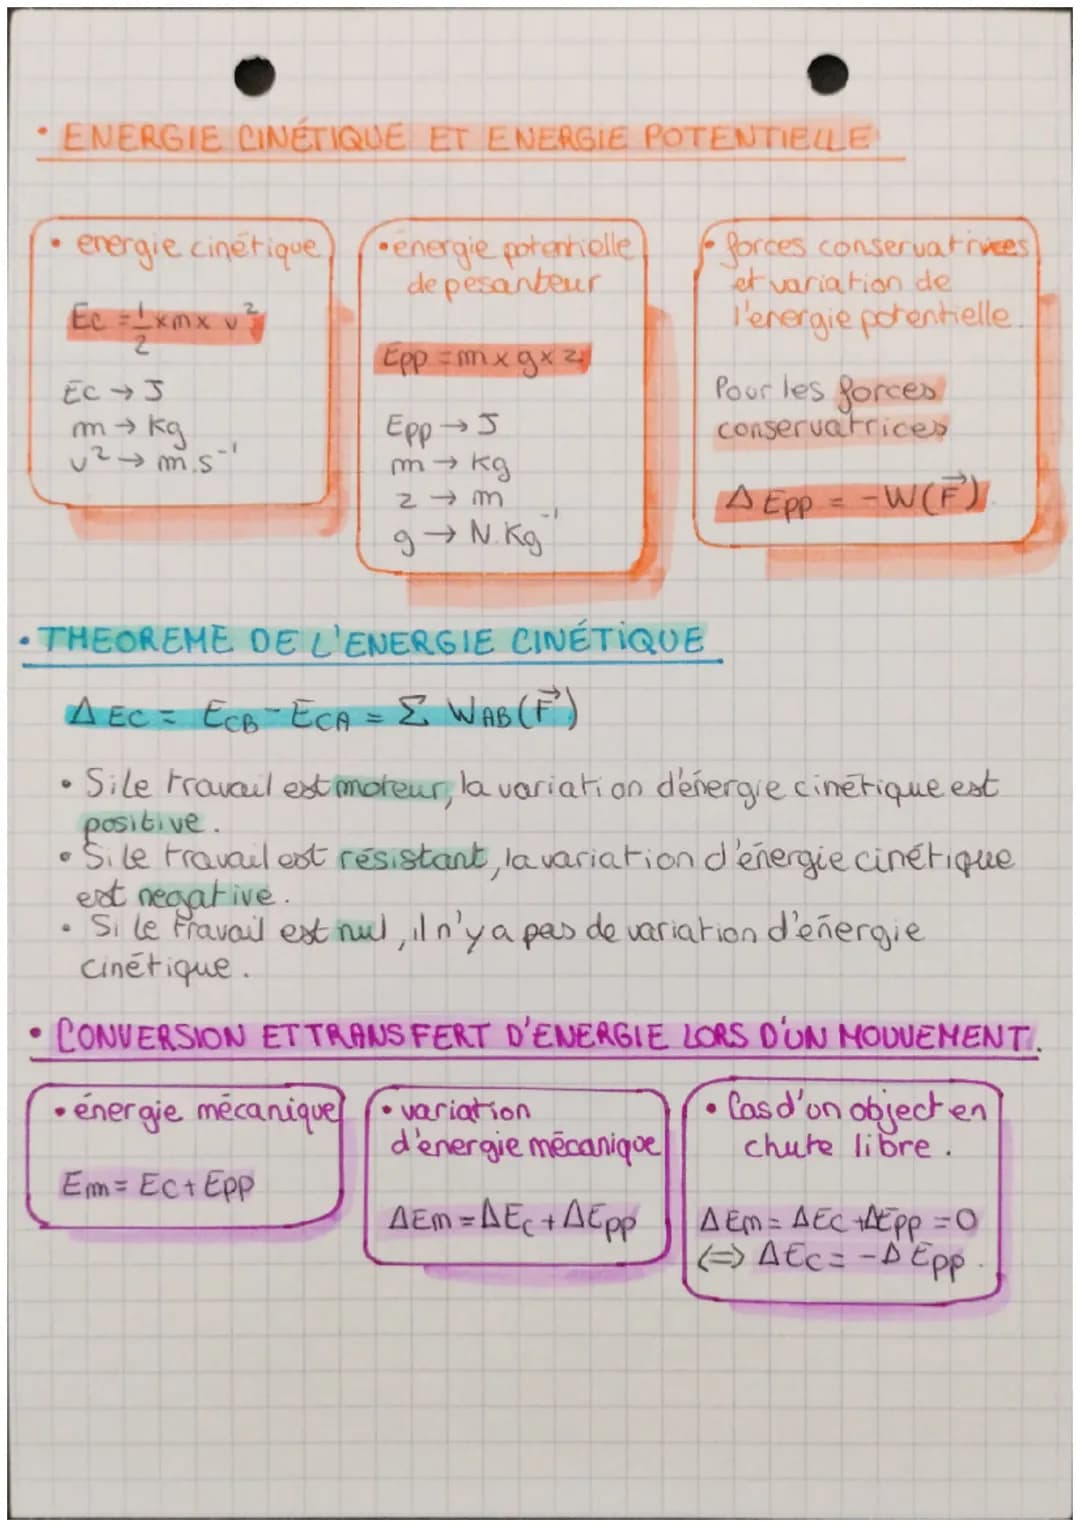 • ENERGIE CINÉTIQUE ET ENERGIE POTENTIELLE
• energie cinétique
Ec = 1/2 x m x v²
Ec → J
m → kg
v² → m.s⁻¹
• énergie potentielle
de pesanteur
Epp = m x g x z
Epp → J
m → kg
z → m
g → N.Kg⁻¹
• forces conservatrices
et variation de
l'energie potentielle.
Pour les forces
conservatrices
Δ Epp = -W(F⃗)
• THEOREME DE L'ENERGIE CINÉTIQUE
Δ Ec = EcB - EcA = Σ WAB(F⃗)
• Si le travail est moteur, la variation d'énergie cinétique est
positive.
• Si le travail est résistant, la variation d'énergie cinétique
est negative.
• Si le travail est nul, il n'y a pas de variation d'énergie
cinétique.
• CONVERSION ET TRANSFERT D'ENERGIE LORS D'UN MOUVEMENT.
• énergie mécanique
Em = Ec + Epp
• variation
d'énergie mécanique
ΔEm = ΔEc + ΔEpp
• Cas d'un object en
chute libre.
ΔEm = ΔEc + ΔEpp = 0
<=> ΔEc = -ΔEpp.